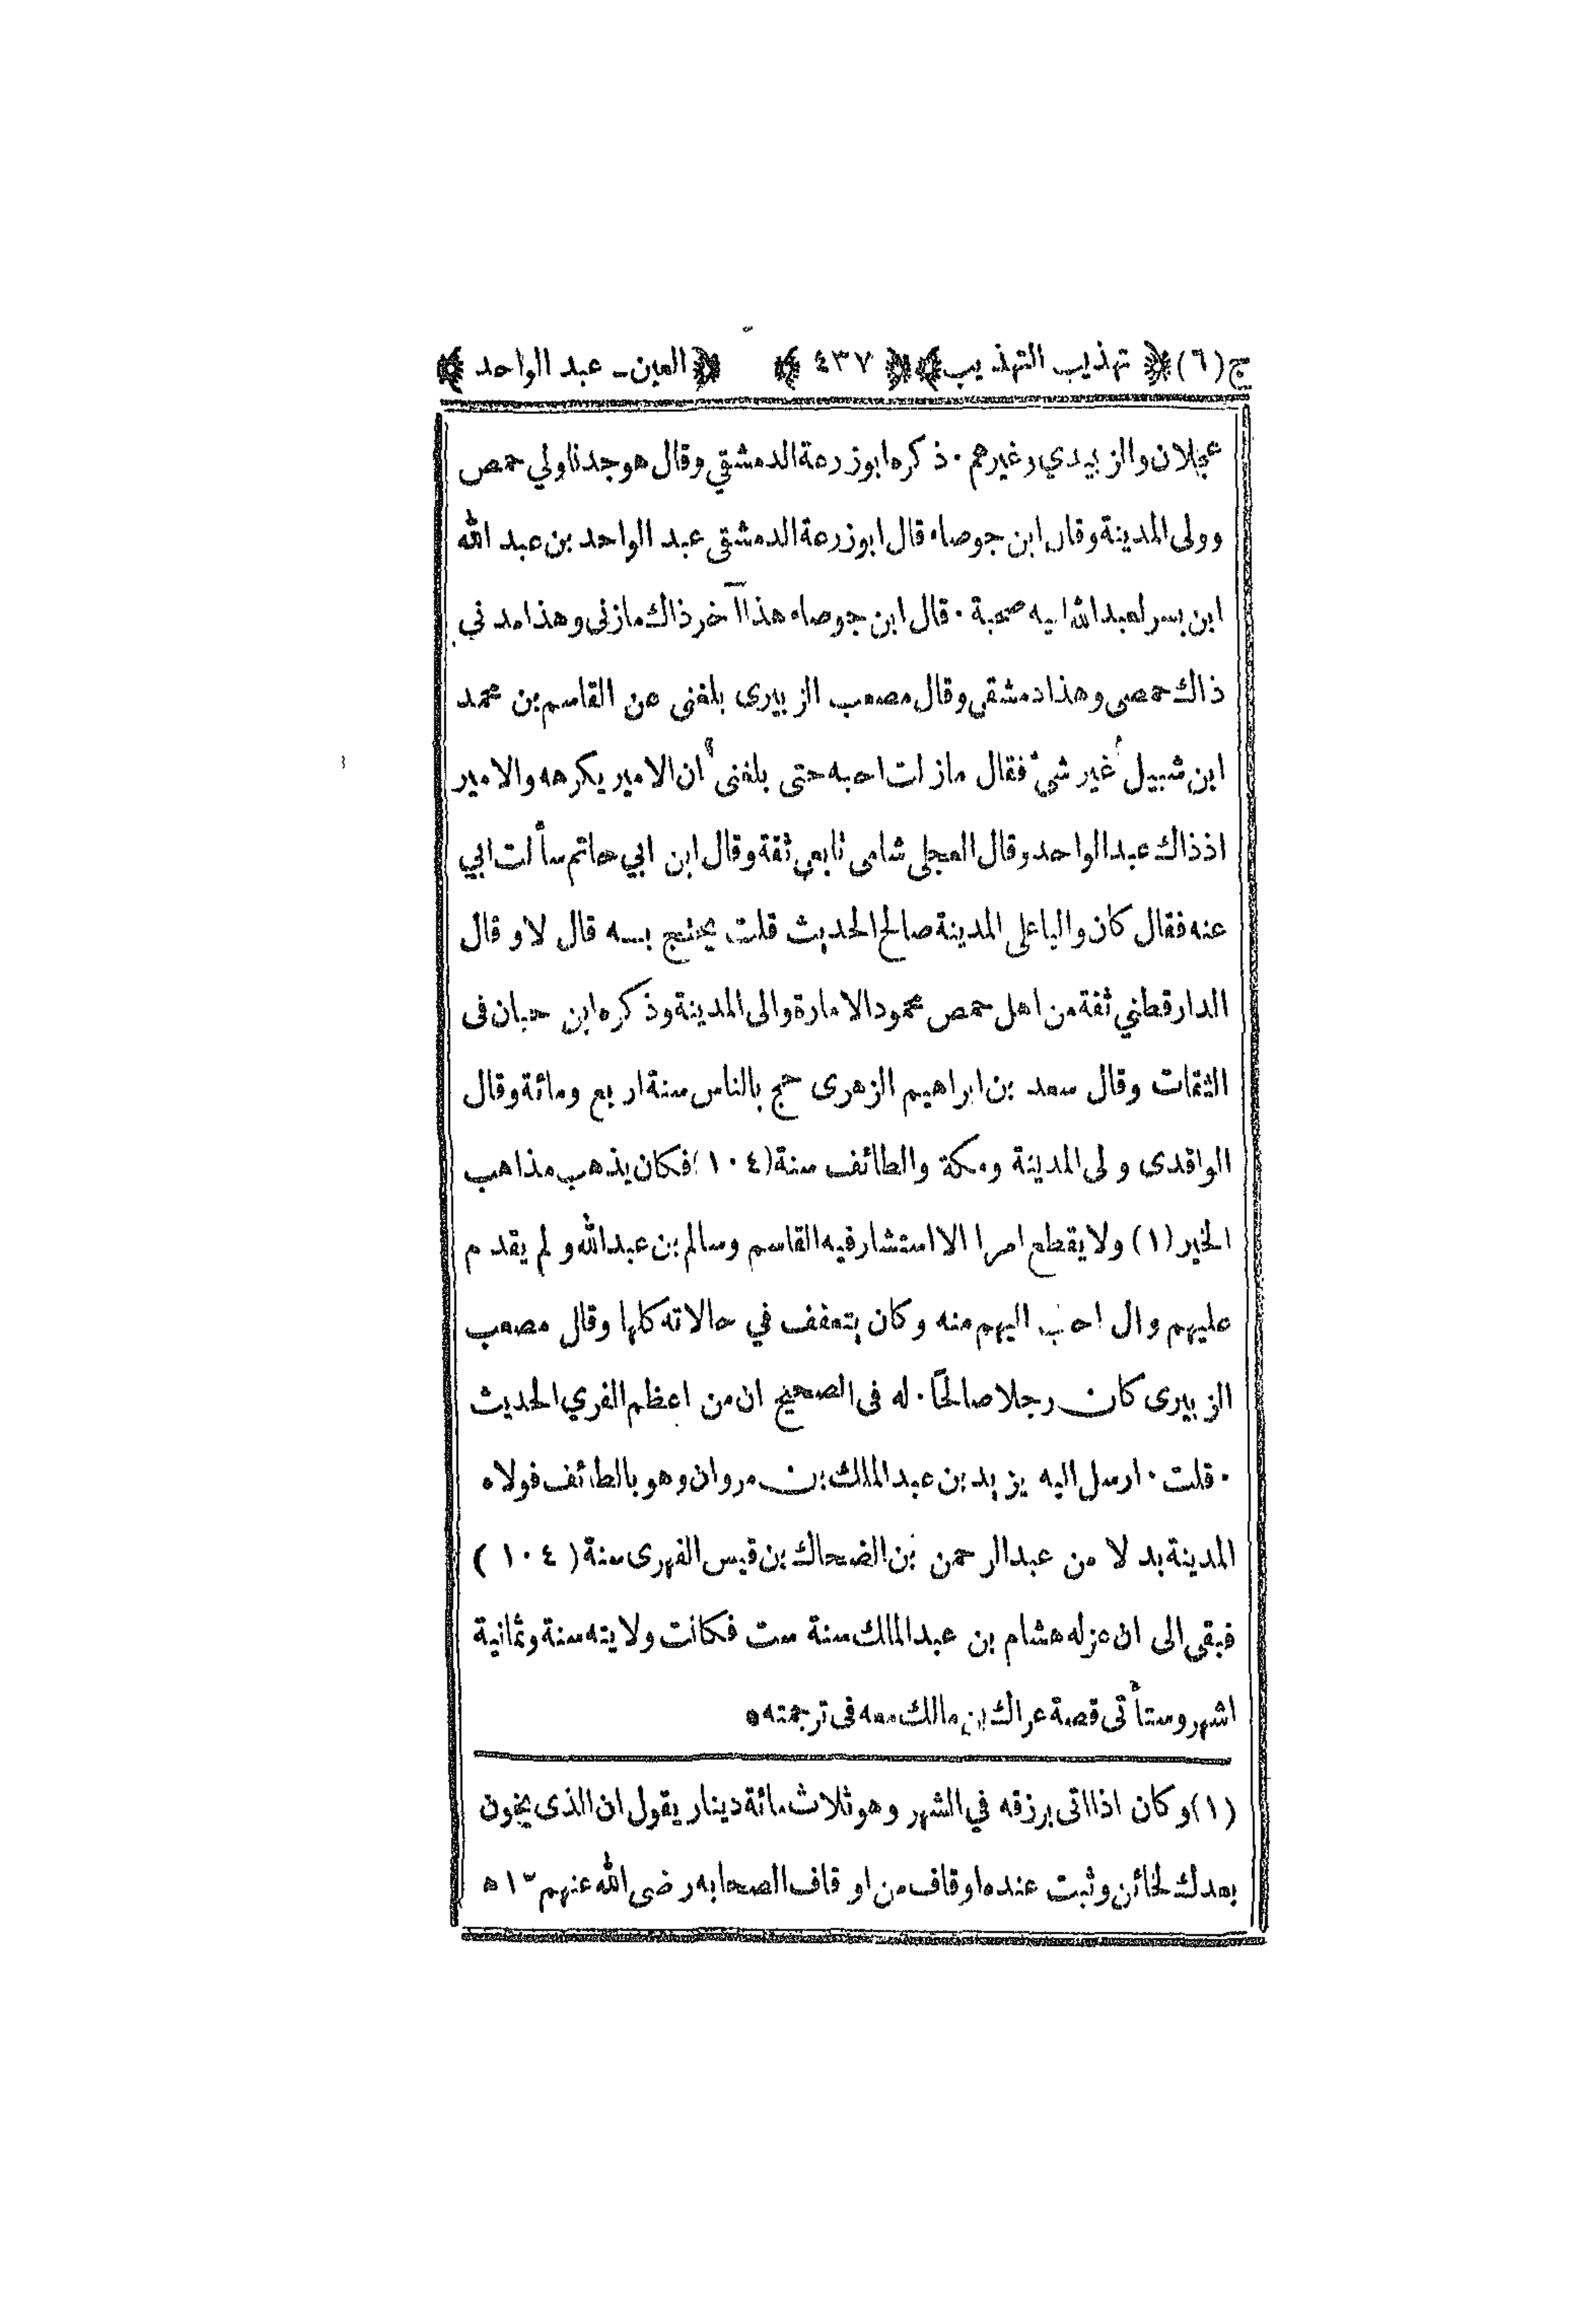 ج (٦) ﴿ تهذيب التهذيب ﴾ ﴿ ٤٣٧ ﴾ ﴿ العين ـ عبد الواحد ﴾
عجلان والزبيدي وغيرهم ٠ ذكره ابو زرعة الدمشقي وقال هو جدنا ولي حمص
وولى المدينة وقال ابن جوصاء قال ابو زرعة الدمشقى عبد الواحد بن عبد الله
ابن بسر لعبد الله ابيه صحبة ٠ قال ابن جوصاء هذا آخر ذاك مازنى وهذا مدني
ذاك حمصى وهذا دمشقى وقال مصعب الزبيرى بلغنى عن القاسم بن محمد
ابن شبيل غير شئ فقال مازلت احبه حتى بلغنى أن الامير يكرهه والامير
اذ ذاك عبد الواحد وقال العجلى شامى تابعى ثقة وقال ابن ابي حاتم سألت ابي
عنه فقال كان واليا على المدينة صالح الحديث قلت يحتج بـه قال لا وقال
الدارقطني ثقة من اهل حمص محمود الامارة والى المدينة وذكره ابن حبان فى
الثقات وقال سعد بن ابراهيم الزهرى حج بالناس سنة اربع ومائة وقال
الواقدى ولى المدينة ومكة والطائف سنة (١٠٤) فكان يذهب مذاهب
الخير (١) ولا يقطع امرا الا استشار فيه القاسم وسالم بن عبد الله ولم يقدم
عليهم وال احب اليهم منه وكان يتعفف في حالاته كلها وقال مصعب
الزبيرى كان رجلا صالحًا ٠ له فى الصحيح ان من اعظم الفري الحديث
٠ قلت ٠ ارسل اليه يزيد بن عبد الملك بن مروان وهو بالطائف فولاه
المدينة بدلا من عبد الرحمن بن الضحاك بن قيس الفهرى سنة (١٠٤)
فبقى الى ان عزله هشام بن عبد الملك سنة ست فكانت ولايته سنة وثمانية
اشهر وستأتى قصة عراك بن مالك معه فى ترجمته ٥
(١) وكان اذا اتى برزقه في الشهر وهو ثلاث مائة دينار يقول ان الذى يخون
بعدك لخائن وثبت عنده اوقاف من اوقاف الصحابه رضى الله عنهم ١٢ ه